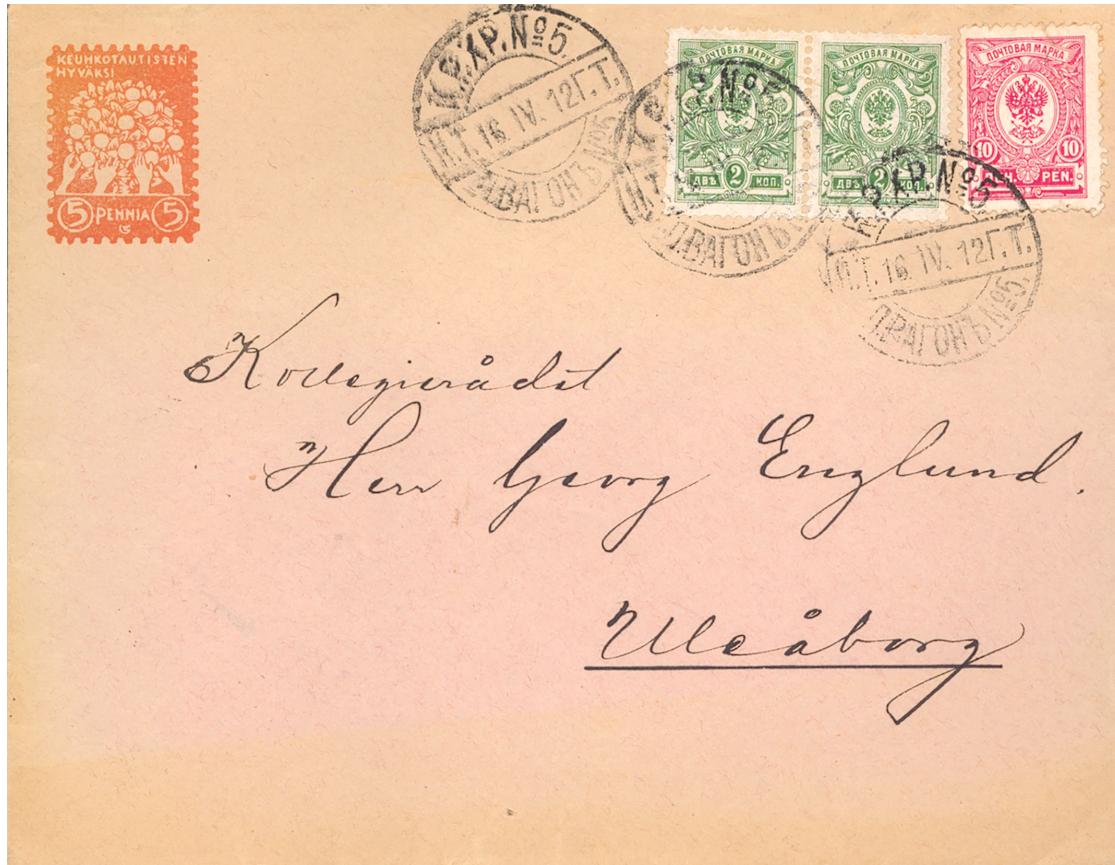 KEUHKOTAUTISTEN
HYVÄKSI
5 PENNIA 5
К.Р.ХР.№5.
П.Т. 16. IV. 12 Г. Т.
П.ВАГОНЪ №5
ПОЧТОВАЯ МАРКА
ДВѢ 2 КОП.
ПОЧТОВАЯ МАРКА
ДВѢ 2 КОП.
ПОЧТОВАЯ МАРКА
10 10
PEN.
ХР.№5
П.Т. 16. IV. 12 Г. Т.
П.ВАГОНЪ №5
П.ВАГОНЪ
Kollegierådet
Herr Georg Englund.
Uleåborg